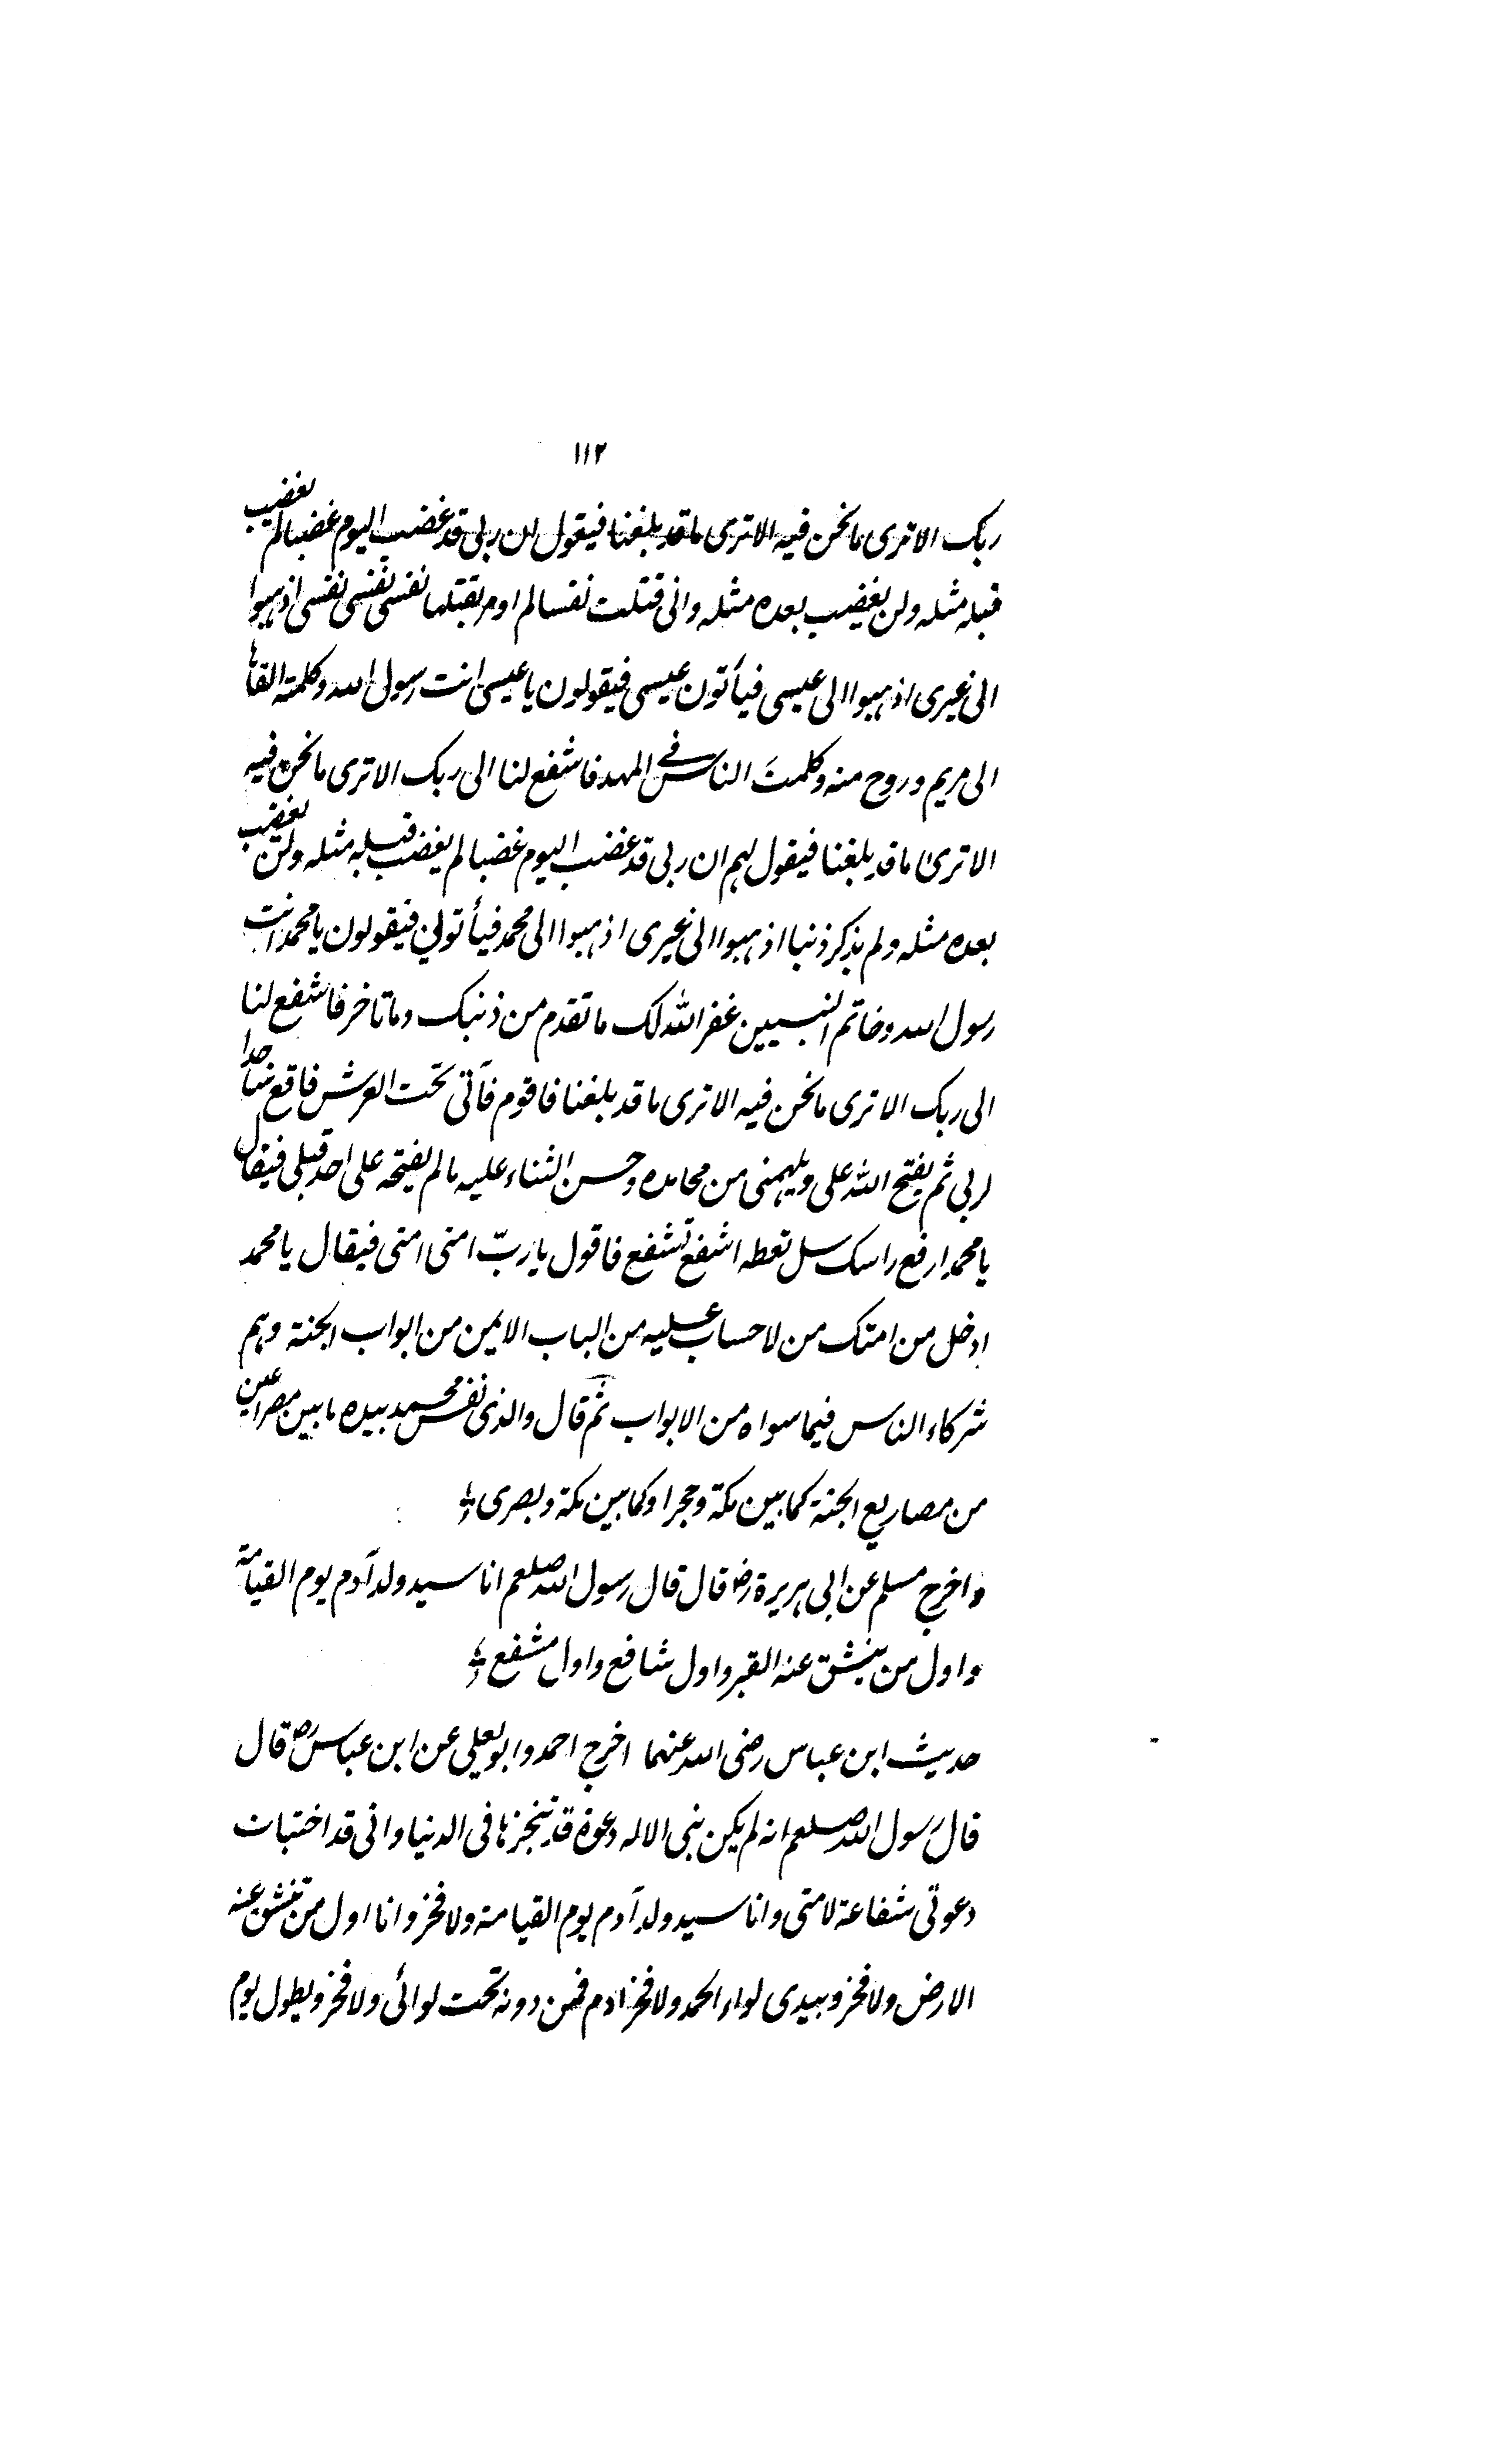 ١١٢
ربک الاتری مانحن فیه الاتری ماقد بلغنا فیقول ان ربی قد غضب الیوم غضبالم یغضب
قبله مثله ولن یغضب بعده مثله وانی قتلت نفسالم اومر بقتلها نفسی نفسی نفسی اذهبوا
الی غیری اذهبوا الی عیسی فیأتون عیسی فیقولون یا عیسی انت رسول الله وکلمته القاها
الی مریم وروح منه وکلمتَ الناس فی المهد فاشفع لنا الی ربک الاتری مانحن فیه
الاتری ماقد بلغنا فیقول لهم ان ربی قد غضب الیوم غضبا لم یغضب قبله مثله ولن یغضب
بعده مثله ولم یذکر ذنبا اذهبوا الی غیری اذهبوا الی محمد فیأتونی فیقولون یا محمد انت
رسول الله وخاتم النبیین غفر الله لک ماتقدم من ذنبک وماتاخر فاشفع لنا
الی ربک الاتری مانحن فیه الاتری ماقد بلغنا فاقوم فآتی تحت العرش فاقع ساجدا
لربی ثم یفتح الله علی ویلهمنی من محامده وحسن الثناء علیه مالم یفتحه علی احد قبلی فیقال
یا محمد ارفع راسک سل تعطه اشفع تشفع فاقول یا ربّ امتی امتی فیقال یا محمد
ادخل من امتک من لاحساب علیه من الباب الایمن من ابواب الجنة وهم
شرکاء الناس فیما سواه من الابواب ثم قال والذی نفس محمد بیده مابین مصراعین
من مصاریع الجنة کما بین مکة وهجر او کما بین مکة وبصری
واخرج مسلم عن ابی هریرة رض قال قال رسول الله صلعم انا سید ولد آدم یوم القیامة
واول من ینشق عنه القبر واول شافع واول مشفع
حدیث ابن عباس رضی الله عنهما اخرج احمد وابو یعلی عن ابن عباس رض قال
قال رسول الله صلعم انه لم یکن نبی الا له دعوة قد تنجزها فی الدنیا وانی قد اختبات
دعوتی شفاعة لامتی وانا سید ولد آدم یوم القیامة ولافخر وانا اول من تنشق عنه
الارض ولافخر وبیدی لواء الحمد ولافخر ادم فمن دونه تحت لوائی ولافخر ویطول یوم